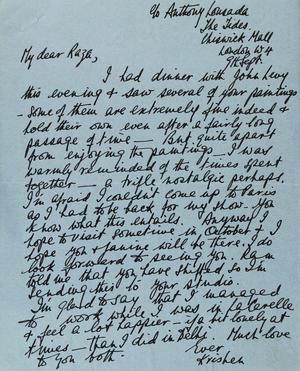 c/o Anthony Lousada
The Tides,
Chiswick Mall
London W4
9th Sept.
My dear Raza,
I had dinner with John Levy
this evening & saw several of your paintings
- some of them are extremely fine indeed &
hold their own even after a fairly long
passage of time — But quite apart
from enjoying the paintings — I was
warmly reminded of the times spent
together — a trifle nostalgic perhaps.
I'm afraid I couldn't come up to Paris
as I had to be back for my show. You
know what this entails. Anyway I
hope to visit sometime in October & I
hope you & Janine will be there. I do
look forward to seeing you. Ram
told me that you have shifted so I'm
sending this to your studio.
I'm glad to say that I managed
to work while I was in
& feel a lot happier — if a bit lonely at
times — than I did in Delhi. Much love
to you both.
Ever
Krishen